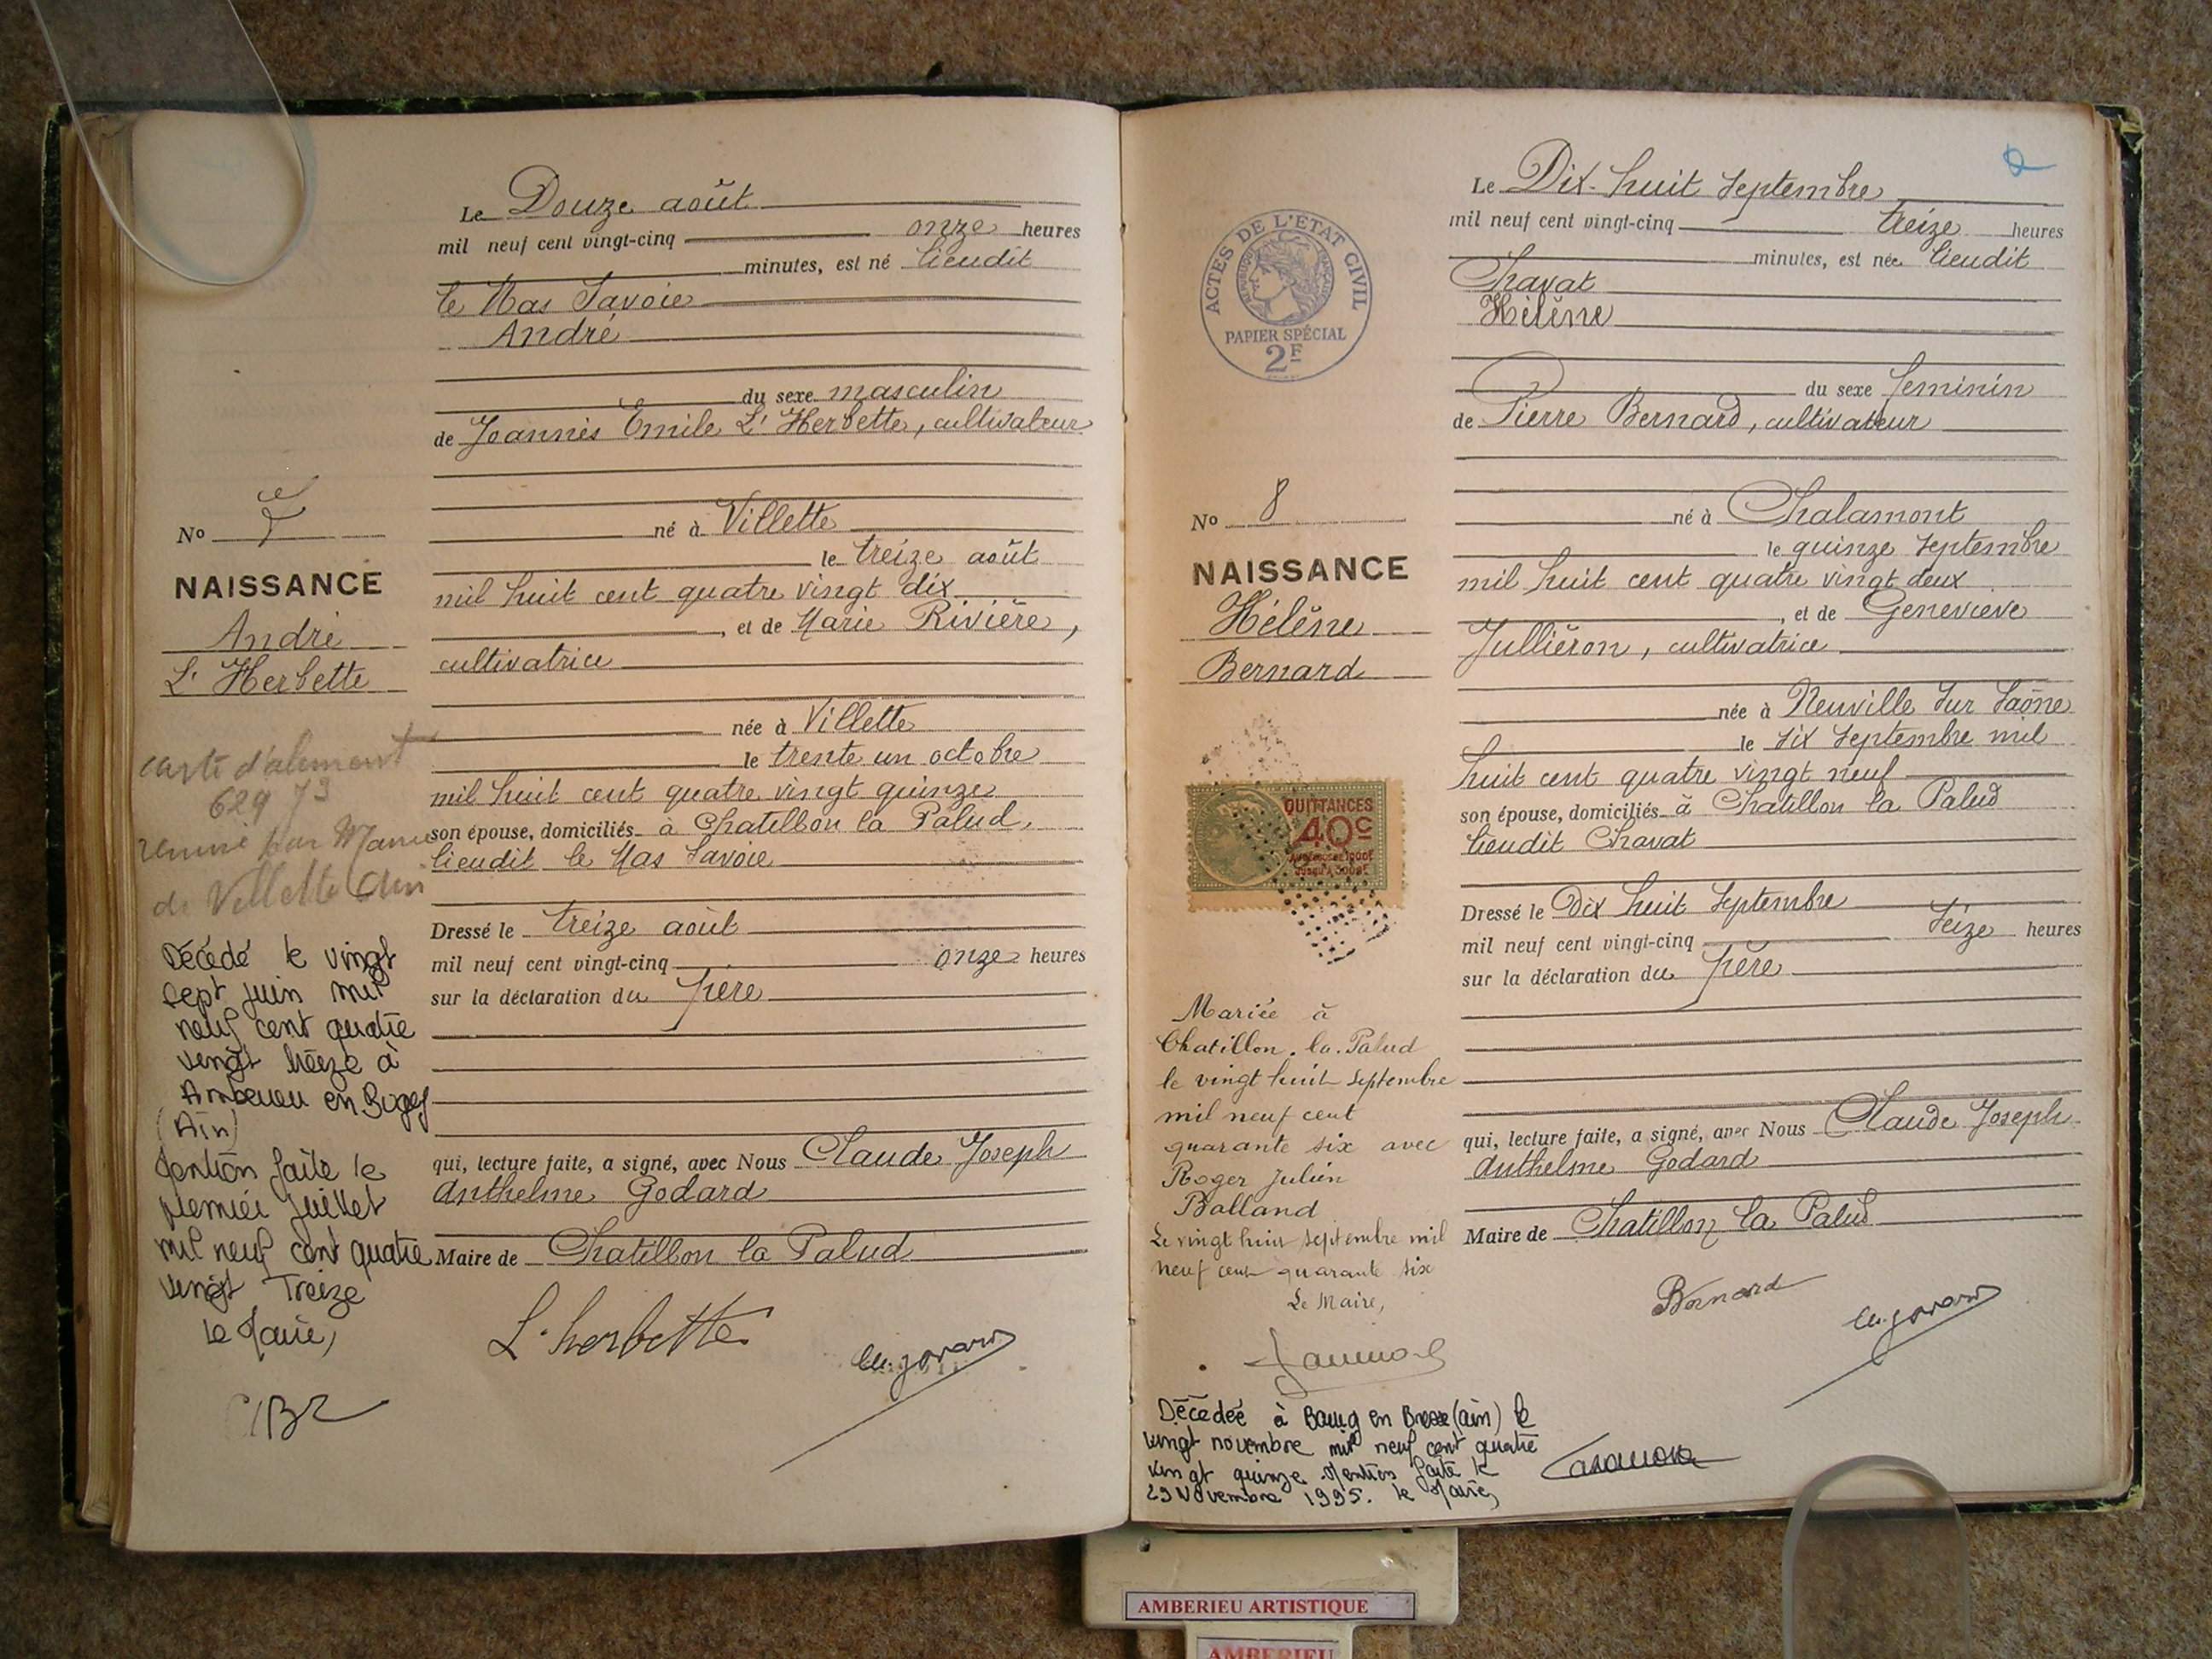 Le Douze août
mil neuf cent vingt-cinq onze heures
minutes, est né lieudit
le Mas Savoie
André
du sexe masculin
de Joannès Emile L'Herbette, cultivateur
né à Villette
le treize août
mil huit cent quatre vingt dix
, et de Marie Rivière,
cultivatrice
née à Villette
le trente un octobre
mil huit cent quatre vingt quinze
son épouse, domiciliés à Chatillon la Palud,
lieudit le Mas Savoie
Dressé le treize août
mil neuf cent vingt-cinq onze heures
sur la déclaration du père
qui, lecture faite, a signé, avec Nous Claude Joseph
Anthelme Godard
Maire de Chatillon la Palud
L'herbette
No 7
NAISSANCE
André
L'Herbette
carte d'aliment
629 73
par
de Villette Ain
Décédé le vingt
sept juin mil
neuf cent quatre
vingt treize à
Amberieu en Bugey
(Ain)
Mention faite le
premier juillet
mil neuf cent quatre
vingt Treize
le Maire,
Le Dix-huit Septembre
mil neuf cent vingt-cinq treize heures
minutes, est née lieudit
Chavat
Hélène
du sexe feminin
de Pierre Bernard, cultivateur
né à Chalamont
le quinze Septembre
mil huit cent quatre vingt deux
, et de Geneviève
Jullièron, cultivatrice
née à Neuville sur Saône
le six Septembre mil
huit cent quatre vingt neuf
son épouse, domiciliés à Chatillon la Palud
lieudit Chavat
Dressé le Dix huit Septembre
mil neuf cent vingt-cinq seize heures
sur la déclaration du père
qui, lecture faite, a signé, avec Nous Claude Joseph
Anthelme Godard
Maire de Chatillon la Palud
Bernard
ACTES DE L'ETAT CIVIL
PAPIER SPÉCIAL
2F
No 8
NAISSANCE
Hélène
Bernard
QUITTANCES
40c
Mariée à
Chatillon-la-Palud
le vingt huit Septembre
mil neuf cent
quarante six avec
Roger Julien
Balland
Le vingt huit septembre mil
neuf cent quarante six
Le Maire,
Décédée à Bourg en Bresse (ain) le
vingt novembre mil neuf cent quatre
vingt quinze Mention faite le
29 Novembre 1995. le Maire,
AMBERIEU ARTISTIQUE
AMBERIEU